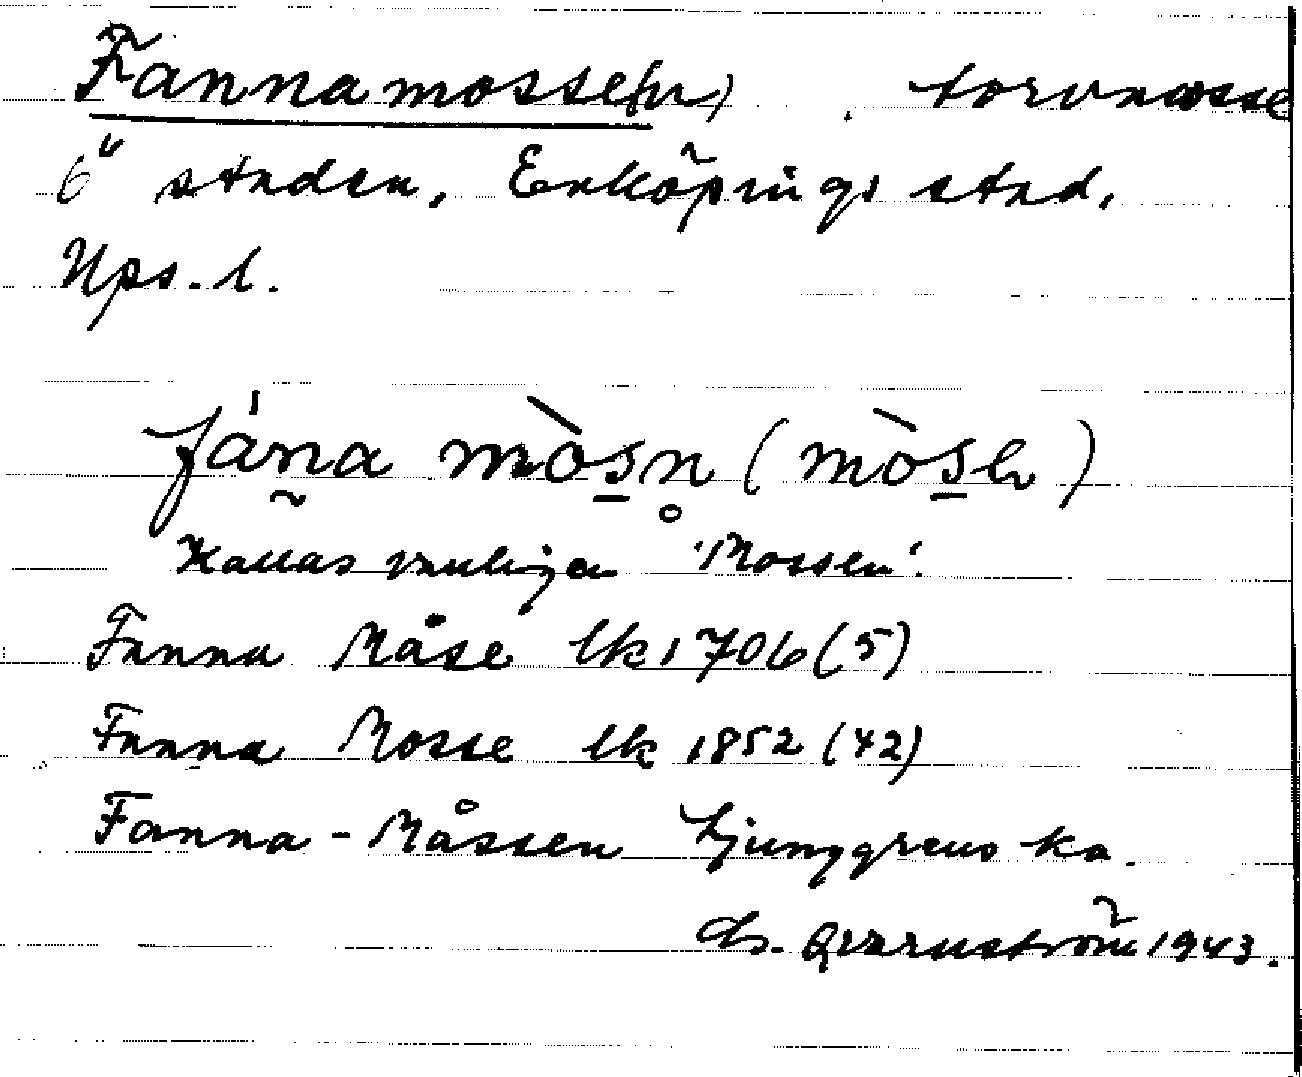 Fannamosse(n) torvmosse
6" staden, Enköpings stad,
Ups. l.
fána mòsn (mòsh)
Kallas vanligen 'Mossen'.
Fanna Måse lk 1706 (5)
Fanna Mosse lk 1852 (42)
Fanna-Måssen Ljunggrens ka.
Qvarnström 1943.